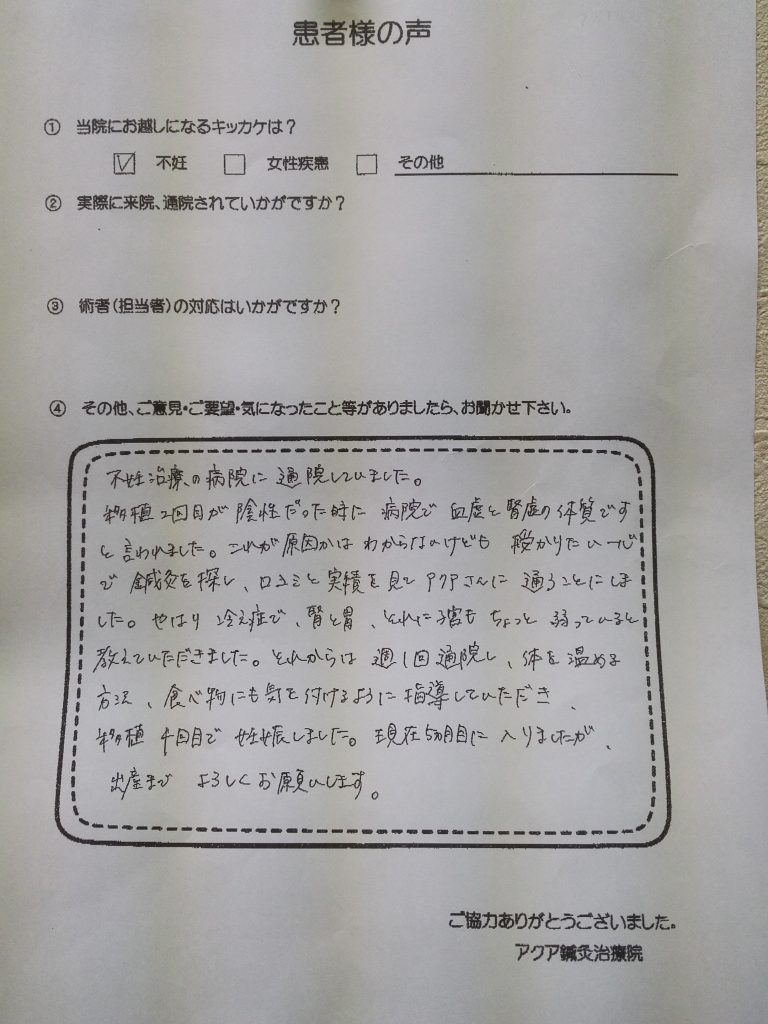 患者様の声
① 当院にお越しになるキッカケは？
☑ 不妊 □ 女性疾患 □ その他
② 実際に来院、通院されていかがですか？
③ 術者（担当者）の対応はいかがですか？
④ その他、ご意見・ご要望・気になったこと等がありましたら、お聞かせ下さい。
不妊治療の病院に通院していました。
移植2回目が陰性だった時に病院で血虚と腎虚の体質です
と言われました。これが原因かはわからないけども授かりたい一心
で鍼灸を探し、口コミと実績を見てアクアさんに通うことにしま
した。やはり冷え症で、腎と胃、それに子宮もちょっと弱っていると
教えていただきました。それからは週1回通院し、体を温める
方法、食べ物にも気を付けるように指導していただき、
移植4回目で妊娠しました。現在5ヵ月目に入りましたが、
出産までよろしくお願いします。
ご協力ありがとうございました。
アクア鍼灸治療院